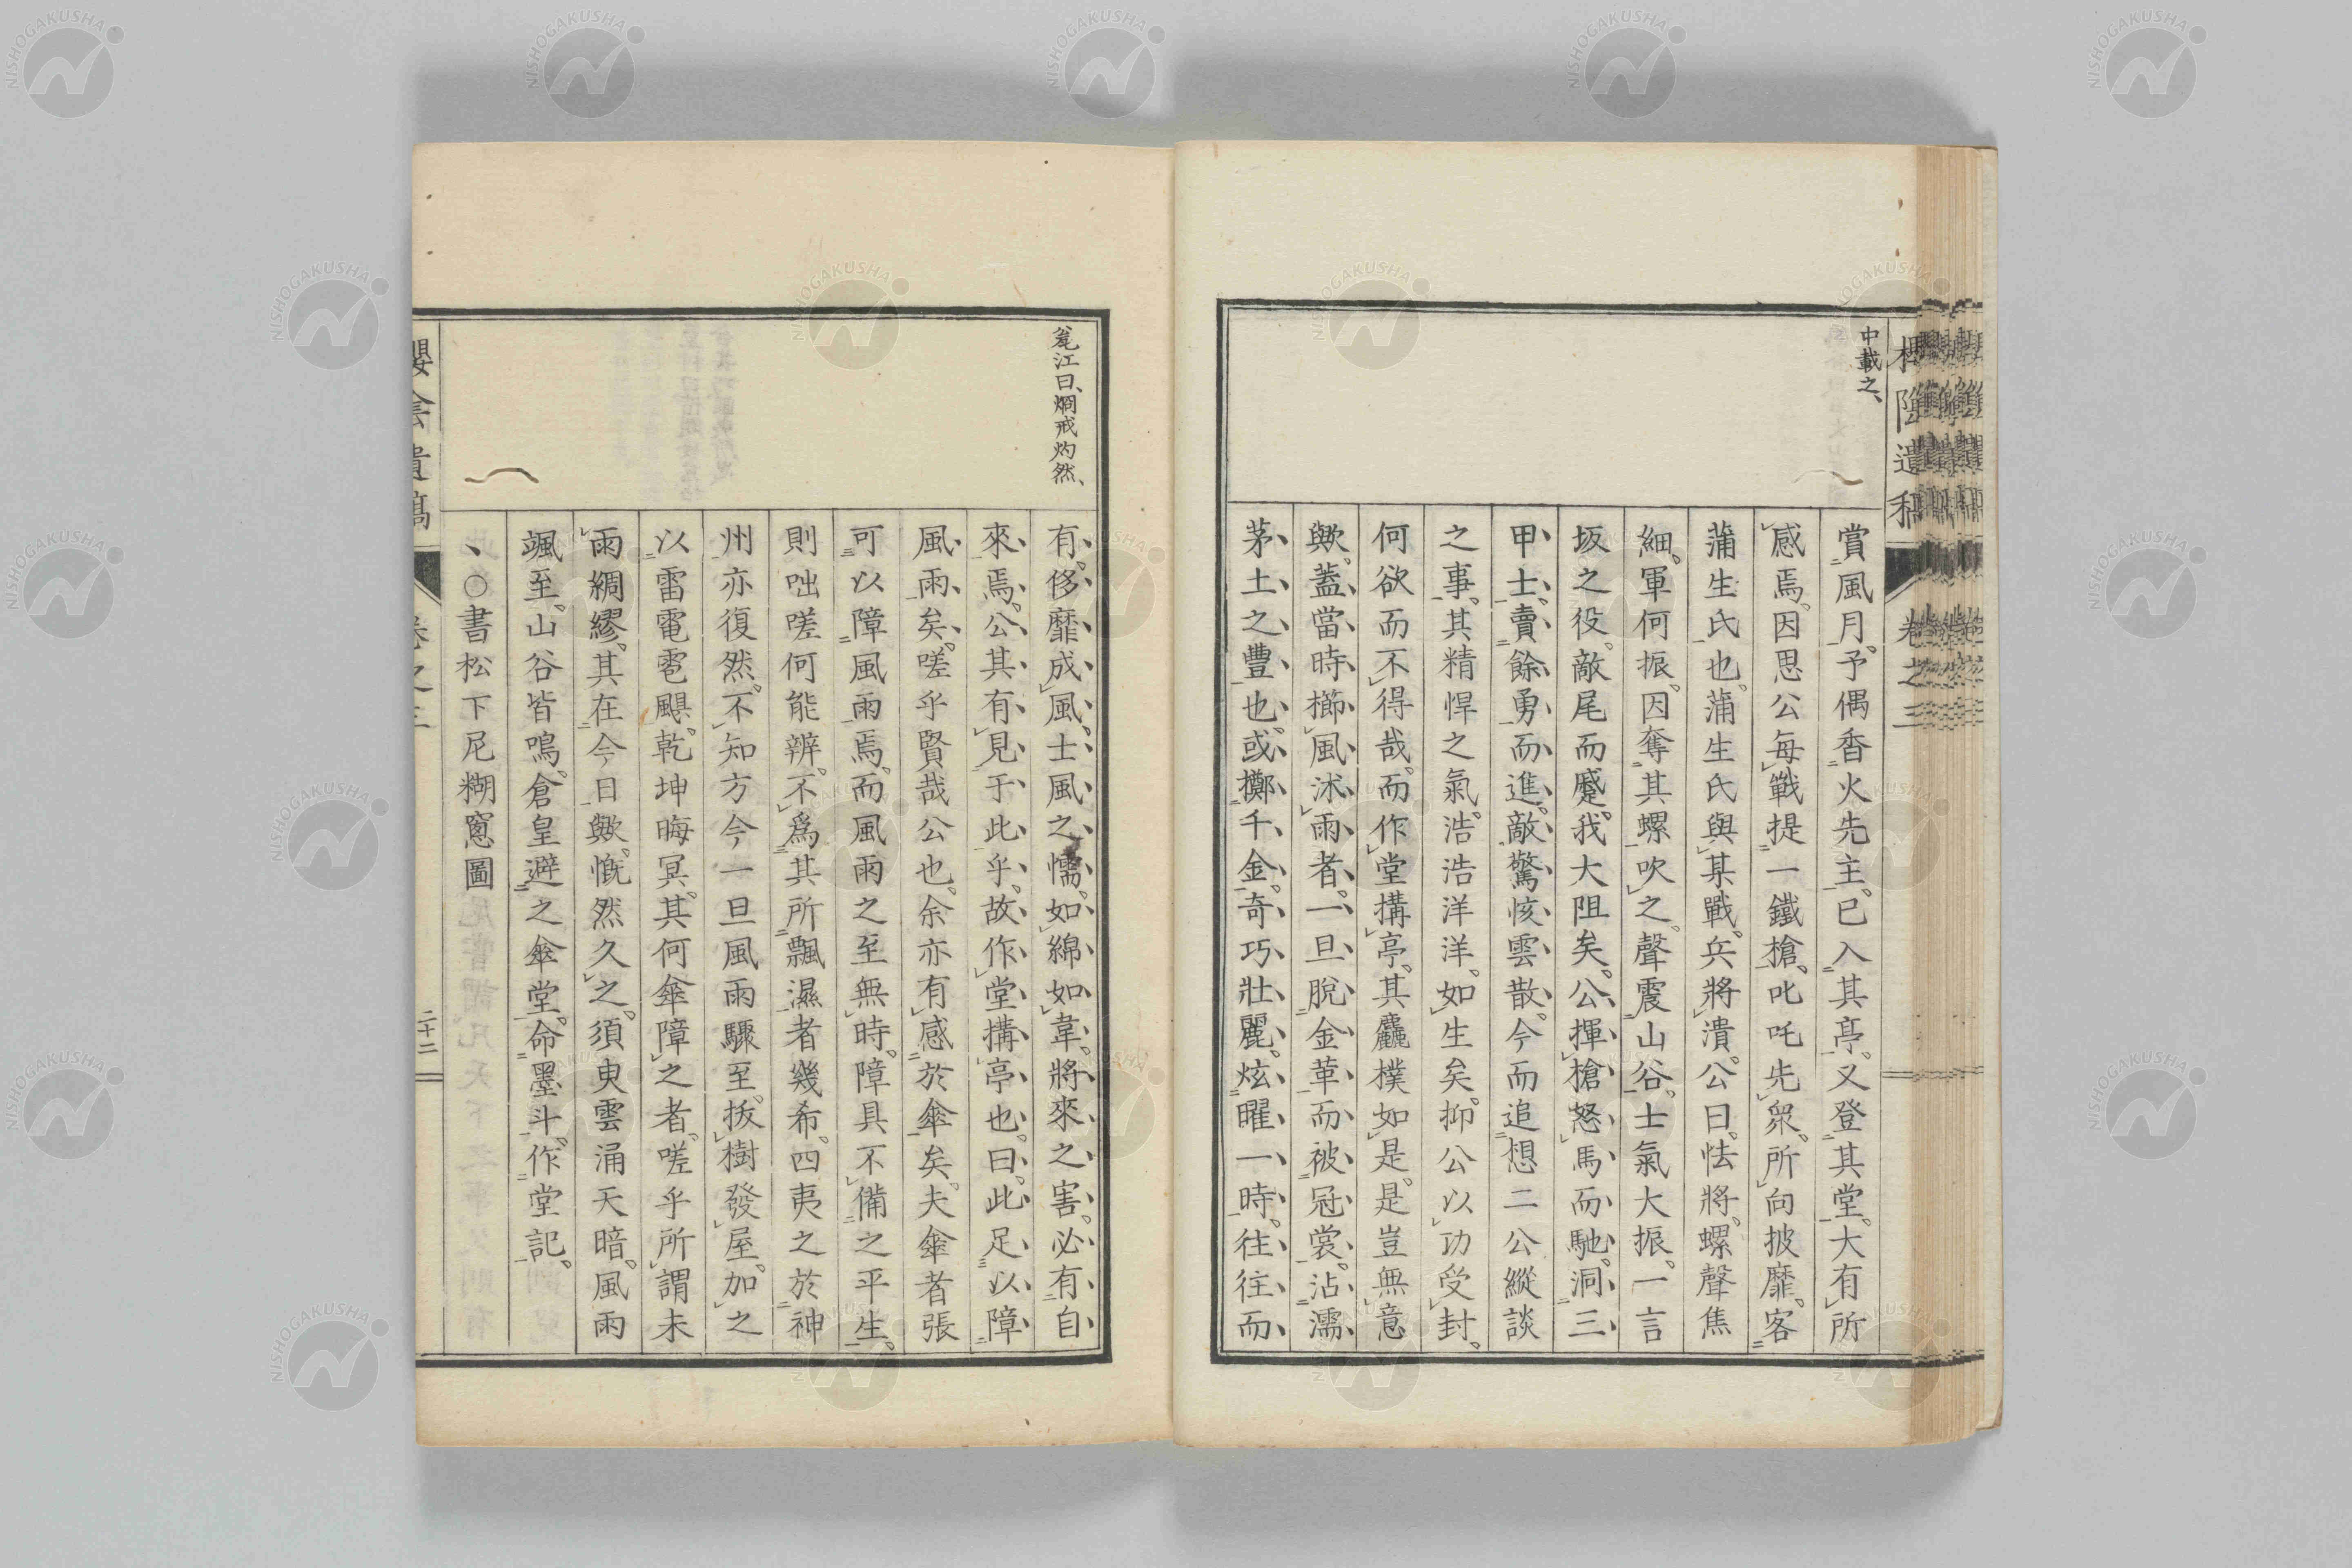 中載之、
賞風月。予偶香火先主。已入其亭。又登其堂。大有所
感焉。因思公每戰提一鐵槍。叱吒先衆。所向披靡。客
蒲生氏也。蒲生氏與某戰。兵將潰。公曰。怯將。螺聲焦
細。軍何振。因奪其螺吹之。聲震山谷。士氣大振。一言
坂之役。敵尾而蹙。我大阻矣。公揮槍怒馬而馳。洞三
甲士。賣餘勇而進。敵驚恢雲散。今而追想二公縱談
之事。其精悍之氣。浩浩洋洋。如生矣。抑公以功受封。
何欲而不得哉。而作堂搆亭。其麤樸如是。是豈無意
歟。蓋當時櫛風沐雨者。一旦脫金革而被冠裳。沾濡
茅土之豐也。或擲千金。奇巧壯麗。炫曜一時。往往而
櫻陰遺稿 卷之三
瓮江曰、烱戒灼然、
有。侈靡成風。士風之懦。如綿如韋。將來之害。必有自
來焉。公其有見于此乎。故作堂搆亭也。曰。此足以障
風雨矣。嗟乎賢哉公也。余亦有感於傘矣。夫傘者張
可以障風雨焉。而風雨之至無時。障具不備之平生。
則咄嗟何能辨。不爲其所飄濕者幾希。四夷之於神
州亦復然。不知方今一旦風雨驟至。拔樹發屋。加之
以雷電雹颶。乾坤晦冥。其何傘障之者。嗟乎所謂未
雨綢繆。其在今日歟。慨然久之。須臾雲涌天暗。風雨
颯至。山谷皆鳴。倉皇避之傘堂。命墨斗。作堂記。
、○書松下尼糊窓圖
櫻陰遺稿 卷之三 二十二